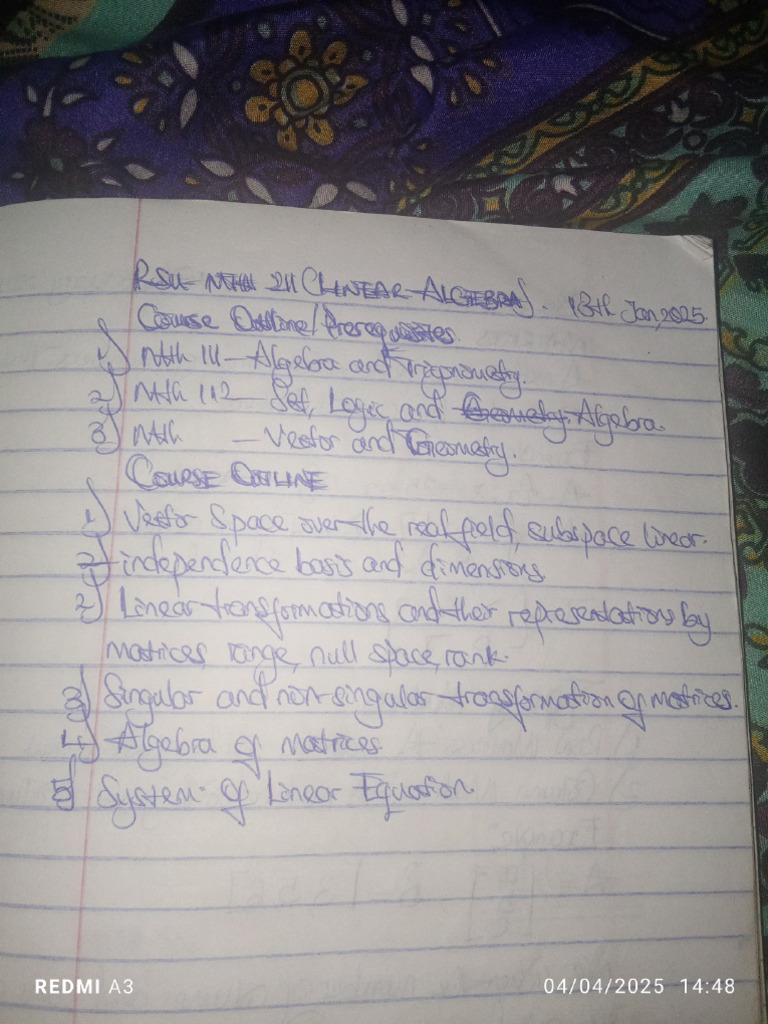 RSU-MTH 211 (LINEAR-ALGEBRA). 13th Jan, 2025.
Course Outline/Prerequisites.
1) Mth 111 - Algebra and Trigonometry.
2) Mth 112 - Set, Logic and Geometry. Algebra.
3) Mth - Vector and Geometry.
COURSE OUTLINE
1) Vector Space over the real field, subspace linear.
2) independence basis and dimensions
2) Linear transformations and their representations by
matrices range, null space, rank.
3) Singular and non-singular transformation of matrices.
4) Algebra of matrices.
5) System of Linear Equation.
REDMI A3 04/04/2025 14:48